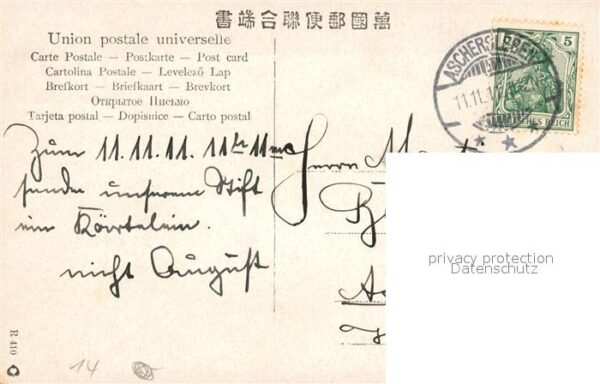 書端合聯便郵國萬
Union postale universelle
Carte Postale — Postkarte — Post card
Cartolina Postale — Levelező Lap
Brefkort — Briefkaart — Brevkort
Открытое Письмо
Tarjeta postal — Dopisnice — Carto postal
ASCHERSLEBEN
11.11.11
5
DEUTSCHES REICH
Zum 11.11.11. 11 Uhr 11 m
sende unserem Stift
ein Kärtelein.
nicht August
Herrn
privacy protection
Datenschutz
R 410
14